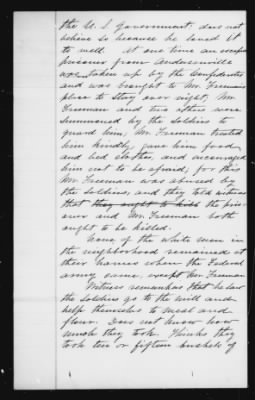 the U. S government, does not
believe so because he loved it
so well. At one time an escaped
prisoner from Andersonville
was taken up by the Confederates
and was brought to Mr Freemans
place to stay over night, Mr.
Freeman and two others were
summoned by the soldiers to
guard him, Mr. Freeman treated
him kindly, gave him food,
and bed clothes, and encouraged
him not to be afraid, for this
Mr. Freeman was abused by
the soldiers, and they told witness
that they ought to kill the pris-
oner and Mr. Freeman both
ought to be killed.
None of the white men in
the neighborhood remained at
their homes when the Federal
army came, except Mr. Freeman
Witness remembers that he saw
the soldiers go to the mill and
help themselves to meal and
flour. Does not know how
much they took. Thinks they
took ten or fifteen bushels of